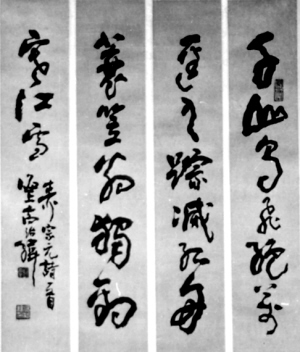 千山鳥飛絕萬
徑人踪滅孤舟
蓑笠翁獨釣
寒江雪
宗元詩一首